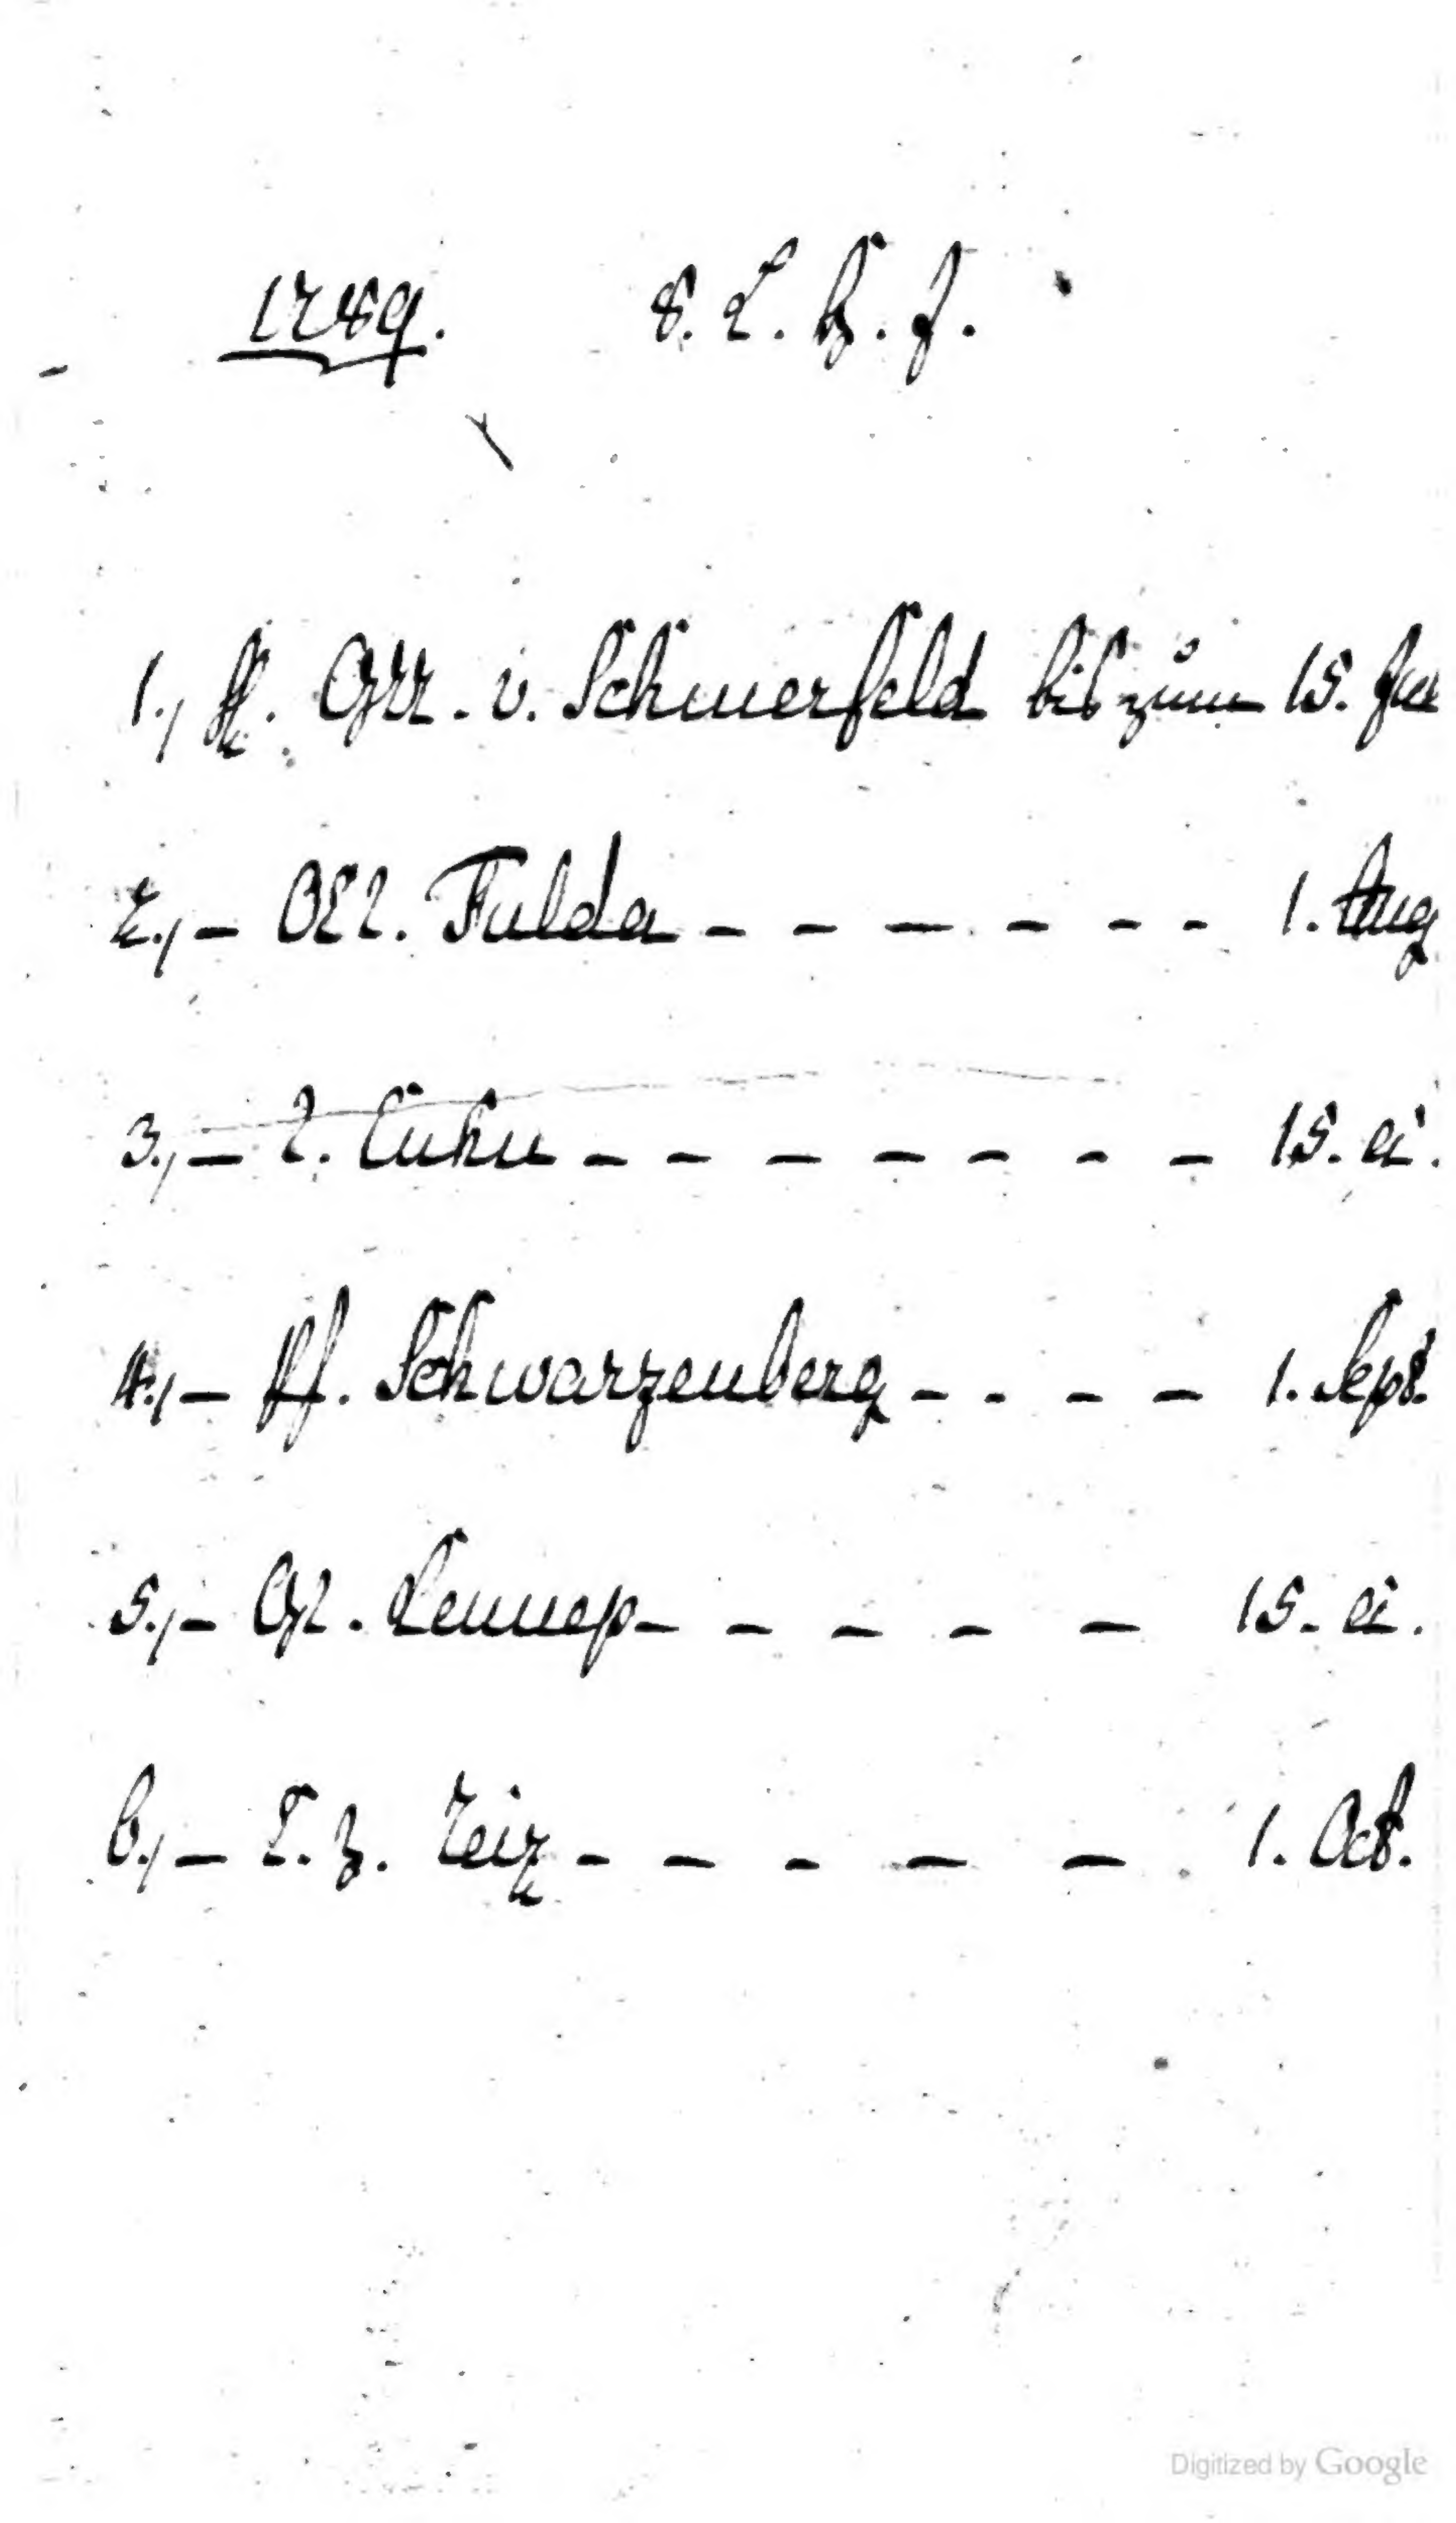 1789. 8. L. H. J.
1., H. GRR. v. Schmerfeld bis zum 15.
2., – OER. Fulda – – – – – – – 1. Aug
3., – R. – – – – – – – 15. ei.
4., – Schwarzenberg – – – – 1. Sept.
5., – GR. Lennep – – – – – 15. ei.
6., – Zeiz – – – – – 1. Oct.
Digitized by Google